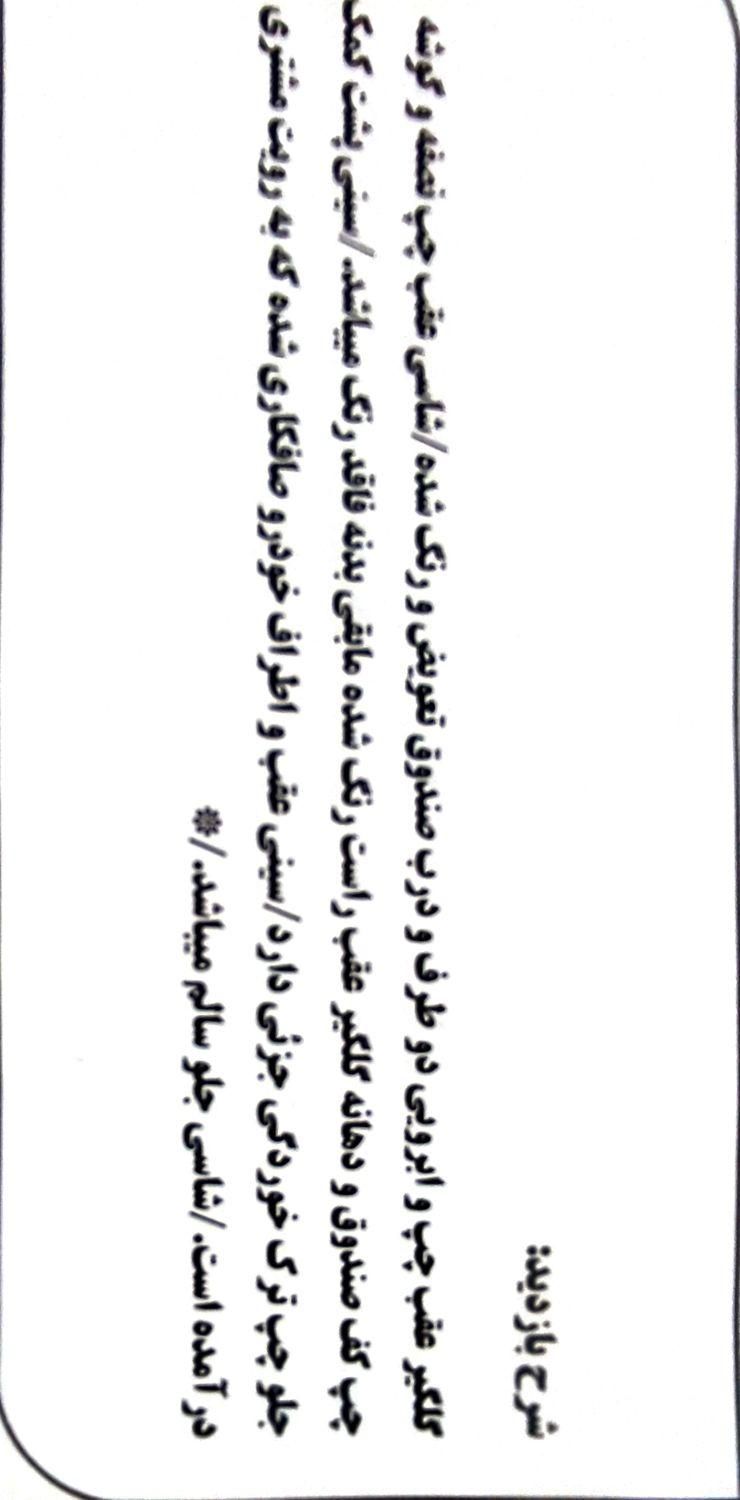 شرح بازدید:
گلگیر عقب چپ و ابرویی دو طرف و درب صندوق تعویض و رنگ شده/شاسی عقب چپ نصفه و گوشه
چپ کف صندوق و دهانه گلگیر عقب راست رنگ شده مابقی بدنه فاقد رنگ میباشد./سینی پشت کمک
جلو چپ ترک خوردگی جزئی دارد/سینی عقب و اطراف خودرو صافکاری شده که به رویت مشتری
در آمده است./شاسی جلو سالم میباشد./*